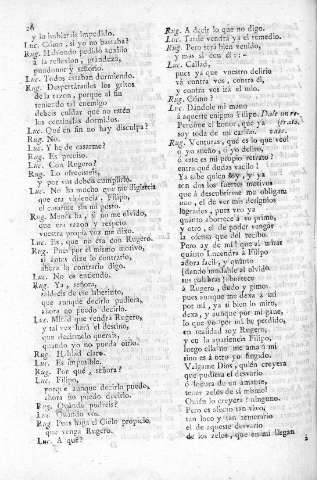 26
y lo hubierais impedido.
Luc. Cómo, si yo no bastaba?
Rug. Habiendo pedido auxilio
á la reflexion, grandeza,
pundonor y señorío.
Luc. Todos estaban durmiendo.
Rug. Despertáraslos los gritos
de la razon, porque el fin
teniendo tal enemigo
debeis cuidar que no estén
los centinelas dormidos.
Luc. Qué en fin no hay disculpa?
Rug. No.
Luc. Y he de casarme?
Rug. Es preciso.
Luc. Con Rugero?
Rug. Lo ofrecisteis,
y por vos debeis cumplirlo.
Luc. No ha mucho que me digisteis
que era violencia, Filipo,
el casarse sin mi gusto.
Rug. Mencha, si no me olvido,
que era razon y respeto
vuestra propia voz me dixo.
Luc. Es, que no era con Rugero.
Rug. Pues por el mismo motivo,
si ántes dixe lo contrario,
ahora la contraria digo.
Luc. No os entiendo.
Rug. Ya, señora,
saldreis de ese laberinto,
que aunque decirlo pudiera,
ahora no puedo decirlo.
Luc. Mirad que vendrá Rugero,
y tal vez hará el destino,
que decirmelo querais,
quando yo no pueda oirlo.
Rug. Hablad claro.
Luc. Es imposible.
Rug. Por qué, señora?
Luc. Filipo,
porque aunque decirlo puedo,
ahora no puedo decirlo.
Rug. Quándo podreis?
Luc. Quando vos.
Rug. Pues haga el Cielo propicio,
que venga Rugero.
Luc. A qué?
Rug. A decir lo que no digo.
Luc. Tarde vendrá ya el remedio.
Rug. Pero será bien venido,
y mas si con él :: -
Luc. Callad,
pues ya que vuestro delirio
vá contra vos, contra él,
y contra vos irá el mio.
Rug. Cómo?
Luc. Dándole mi mano
á aqueste enigma Filipo. Dale un re-
Perdone el honor, que ya trato,
soy toda de mi cariño. vase.
Rug. Venturas, qué es lo que veo!
ó yo sueño, ó yo deliro,
ó este es mi propio retrato?
entre qué dudas vacilo!
Ya sabe quien soy, y ya
son dos los fuertes motivos
que á descubrirme me obligan
uno, el de ver mis designios
logrados, pues veo ya
quánto aborrece á su primo,
y otro, el de poder vengar
la ofensa que del recibo.
Pero ay de mí! que al mirar
quánto Lucendra á Filipo
adora facil, y quánto
(dando mudable al olvido
sus palabras) aborrece
á Rugero, dudo y gimo;
pues aunque me dexa á mí
por mí, ya si bien lo miro,
dexa, y aunque por mi gane,
lo que yo por mí he perdido,
en realidad soy Rugero,
y en la apariencia Filipo,
luego ella no me ama á mí
sino es á otro yo fingido.
Valgame Dios, quién creyera
que pudiera el desvarío
ó locura de un amante,
tener zelos de si mismo!
Quién lo creyera! ninguno.
Pero es afecto tan vivo,
tan loco y tan temerario
el de aqueste desvarío
de los zelos, que en mí llegan
á